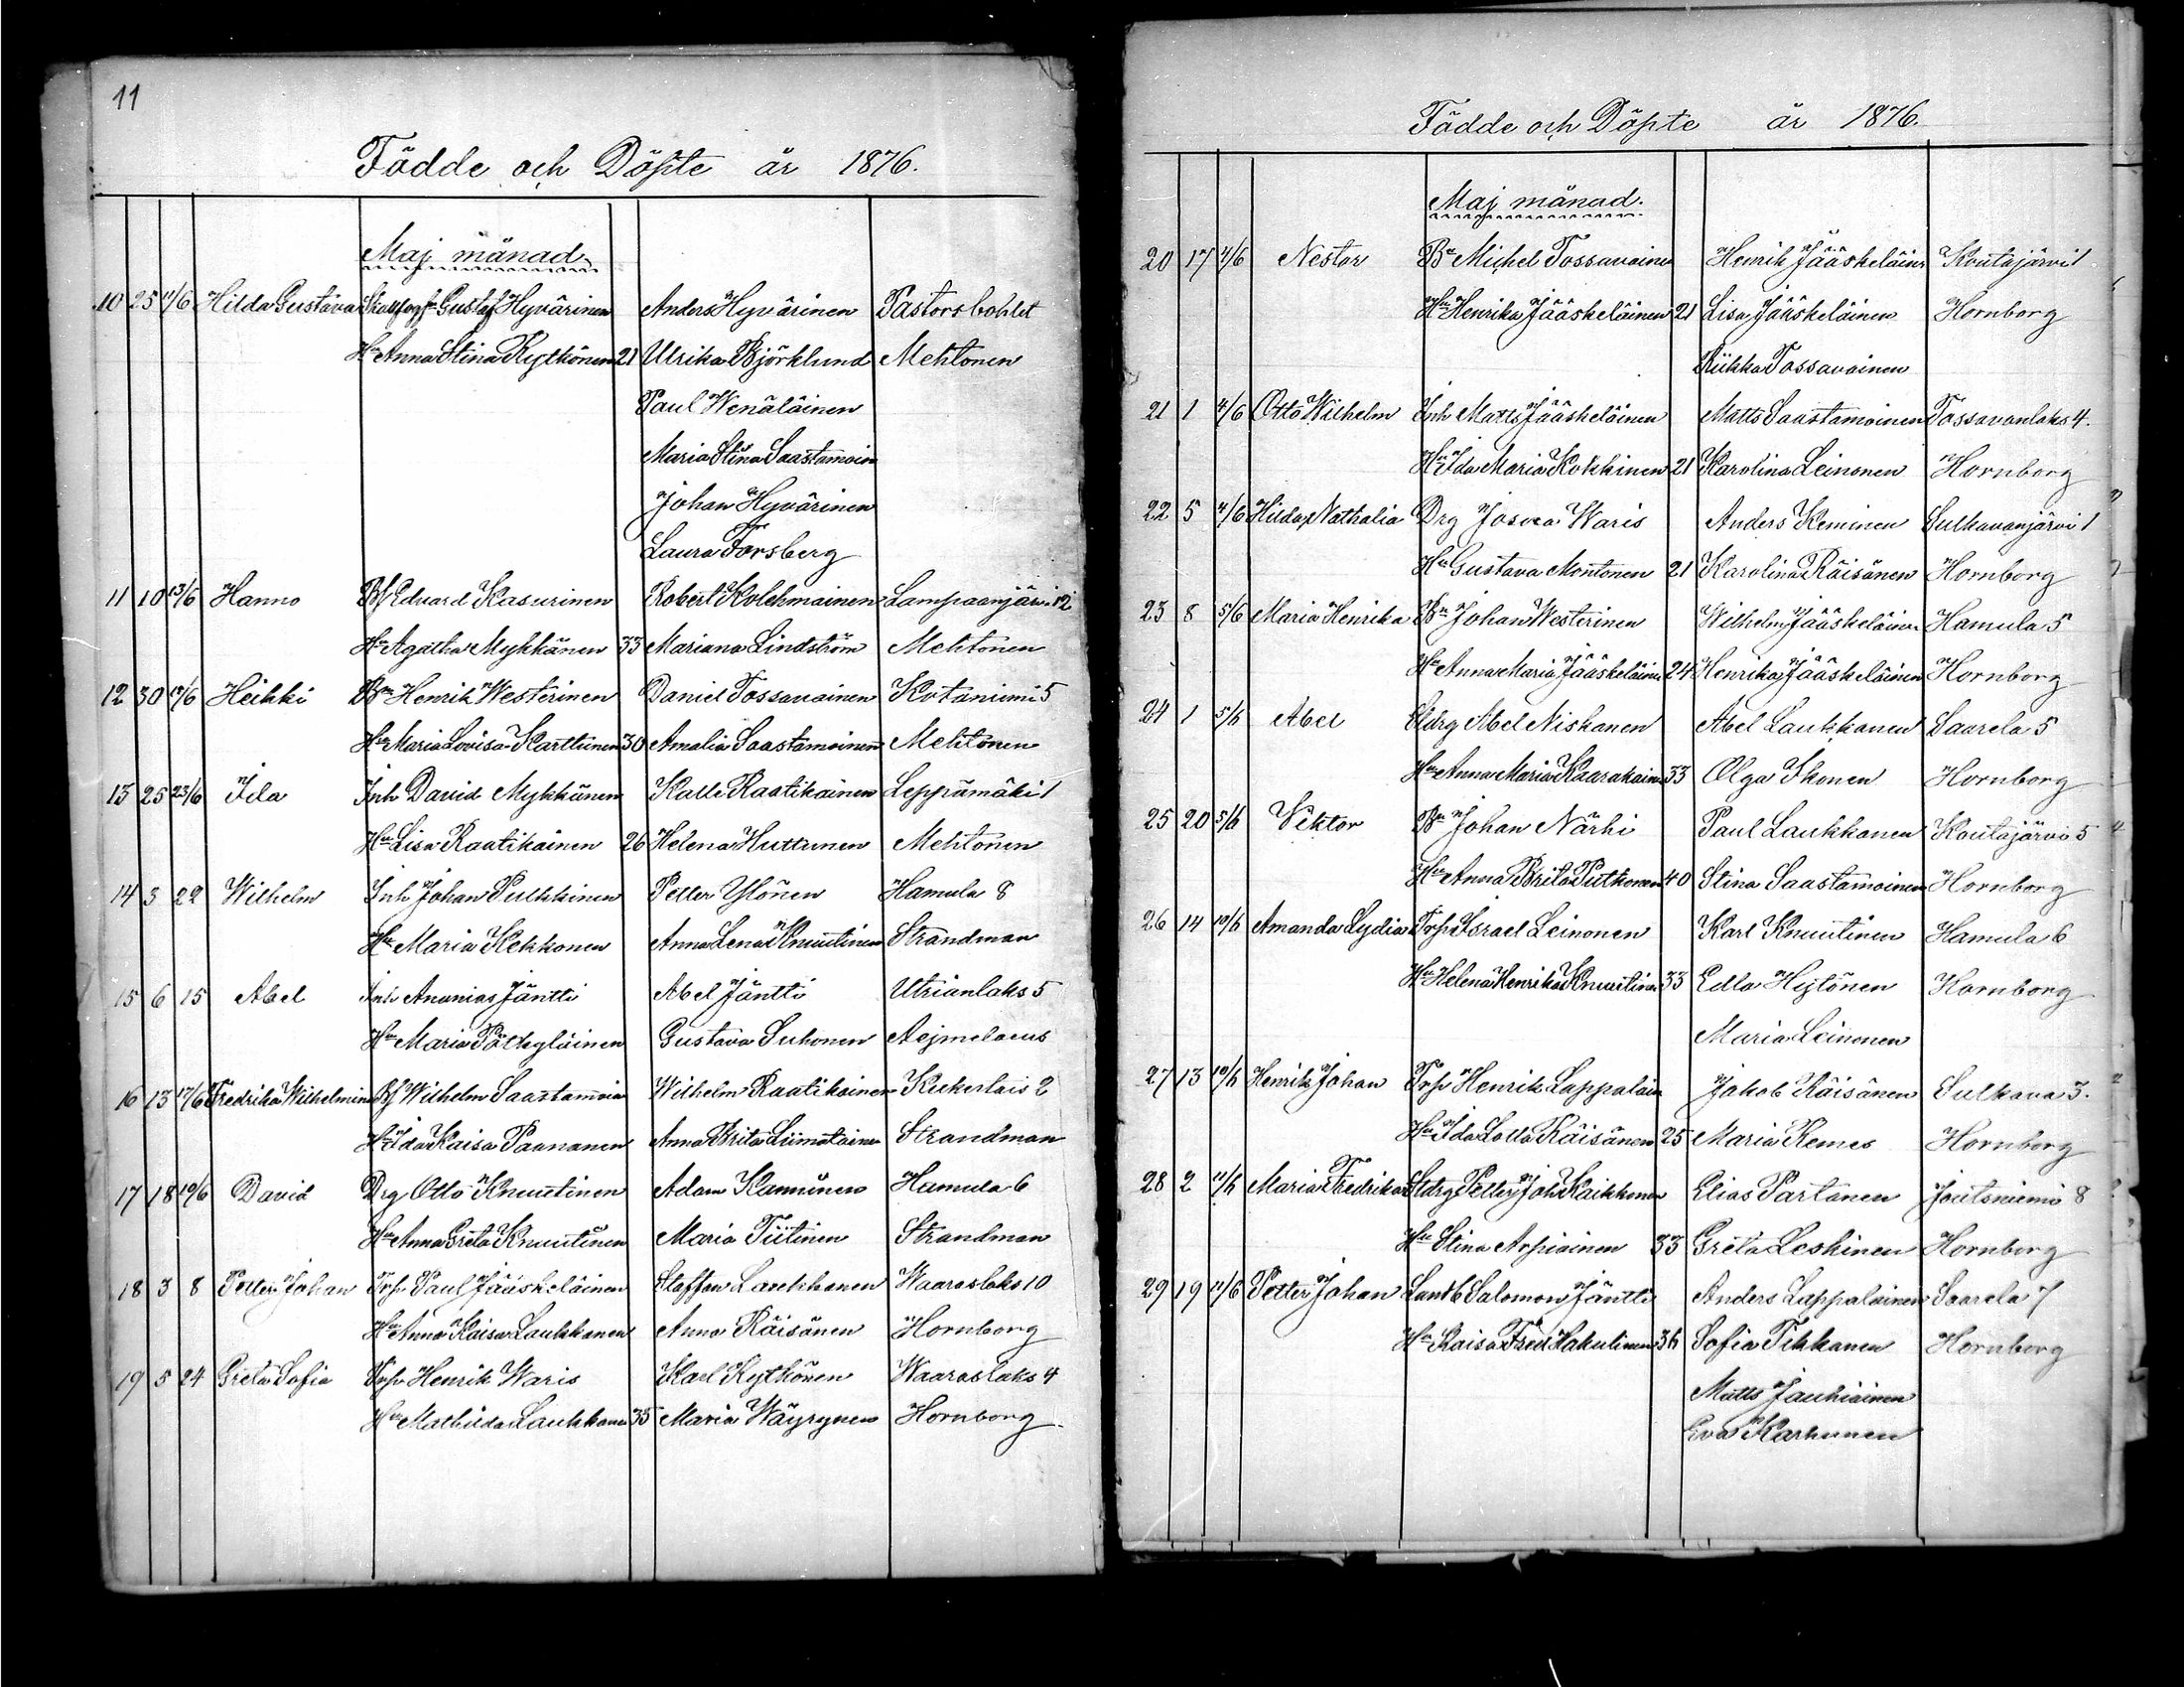 11
Födde och Döpte år 1876.
Maj månad.
10 25 11/6 Hilda Gustava Gustaf Hyvärinen Anders Hyvärinen Pastorsbohlet
Hu Anna Stina Kytkönen 21 Ulrika Björklund Mehtonen
Paul Wenäläinen
Maria Stina Saastamoin
Johan Hyvärinen
Laura Forsberg
11 10 13/6 Hanno Bf Eduard Kasurinen Robert Kolehmainen Lampaanjärvi 12
Hu Agatha Mykkänen 33 Mariana Lindström Mehtonen
12 30 Heikki Bn Henrik Westerinen Daniel Tossavainen Kotaniemi 5
Hu Maria Lovisa Karttunen 30 Amalia Saastamoinen Mehtonen
13 25 25/6 Ida Inh David Mykkänen Kalle Raatikainen Leppämäki 1
Hu Lisa Raatikainen 26 Helena Huttunen Mehtonen
14 3 22 Wilhelm Inh Johan Pulkkinen Petter Ylönen Hamula 8
Hu Maria Kekkonen Anna Lena Knuutinen Strandman
15 6 15 Abel Inh Ananias Jäntti Abel Jäntti Utrianlaks 5
Hu Maria Gustava Suhonen Aejmelaeus
16 13 17/6 Fredrika Wilhelmin Bf Wilhelm Saastamoin Wilhelm Raatikainen 2
Hu Ida Kaisa Paananen Anna Brita Liimatainen Strandman
17 18 10/6 David Drg Otto Knuutinen Adam Kanninen Hamula 6
Hu Anna Greta Knuutinen Maria Tiitinen Strandman
18 3 8 Petter Johan Torp Paul Jääskeläinen Staffan Laukkanen Waaraslaks 10
Hu Anna Kaisa Laukkanen Anna Räisänen Hornborg
19 5 24 Greta Sofia Torp Henrik Waris Karl Kytkönen Waaraslaks 4
Hu Mathilda Laukkanen 35 Maria Wäyrynen Hornborg.
Födde och Döpte år 1876.
Maj månad.
20 17 4/6 Nestor Bn Michel Tossavainen Henrik Jääskeläinen Koutajärvi 1
Hu Henrika Jääskeläinen 21 Lisa Jääskeläinen Hornborg
Riikka Tossavainen
21 1 4/6 Otto Wilhelm Inh Matts Jääskeläinen Matts Saastamoinen Tossavanlaks 4.
Hu Ida Maria Kokkinen 21 Karolina Leinonen Hornborg
22 5 4/6 Hilda Nathalia Drg Josva Waris Anders Keminen Sulkavanjärvi 1
Hu Gustava Montonen 21 Karolina Räisänen Hornborg
23 8 5/6 Maria Henrika Bn Johan Westerinen Wilhelm Jääskeläinen Hamula 5
Hu Anna Maria Jääskeläine 24 Henrika Jääskeläinen Hornborg
24 1 5/6 Abel Stdrg Abel Niskanen Abel Laukkanen Saarela 5
Hu Anna Maria Kaarakain 33 Olga Ikonen Hornborg
25 20 5/6 Viktor Bn Johan Närhi Paul Laukkanen Koutajärvi 5
Hu Anna Brita Putkonen 40 Stina Saastamoinen Hornborg
26 14 10/6 Amanda Lydia Torp Israel Leinonen Karl Knuutinen Hamula 6
Hu Helena Henrika Knuutinen 33 Edla Hytönen Hornborg
Maria Leinonen
27 13 10/6 Henrik Johan Torp Henrik Lappalain Jakob Räisänen Sulkava 3.
Hu Ida Lotta Räisänen 25 Maria Kemes Hornborg
28 2 11/6 Maria Fredrika Stdrg Petter Joh Kaikkonen Elias Partanen Joutsniemi 8
Hu Stina Arpiainen 33 Greta Leskinen Hornborg
29 19 11/6 Petter Johan Lantb Salomon Jäntti Anders Lappalainen Saarela 7
Hu Kaisa Fred Hakulinen 36 Sofia Tikkanen Hornborg
Matts Jauhiainen
Eva Karhunen